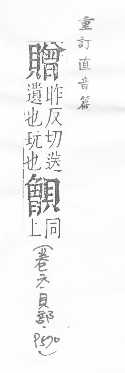 重訂直音篇
贈 昨反切送
遺也玩也
同
上
(卷六貝部·P590)